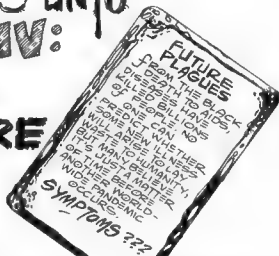 UNTO
IV:
RE
FUTURE
PLAGUES
FROM THE BLACK
DEATH TO AIDS,
DISEASES HAVE
KILLED BILLIONS
OF PEOPLE.
NO ONE CAN
PREDICT WHETHER
SOME NEW ILLNESS
WILL ARISE TO LAY
WAST HUMANITY,
BUT MANY BELIEVE
IT'S JUST A MATTER
OF TIME BEFORE
ANOTHER WORLD-
WIDE PANDEMIC
OCCURS.
SYMPTOMS ???